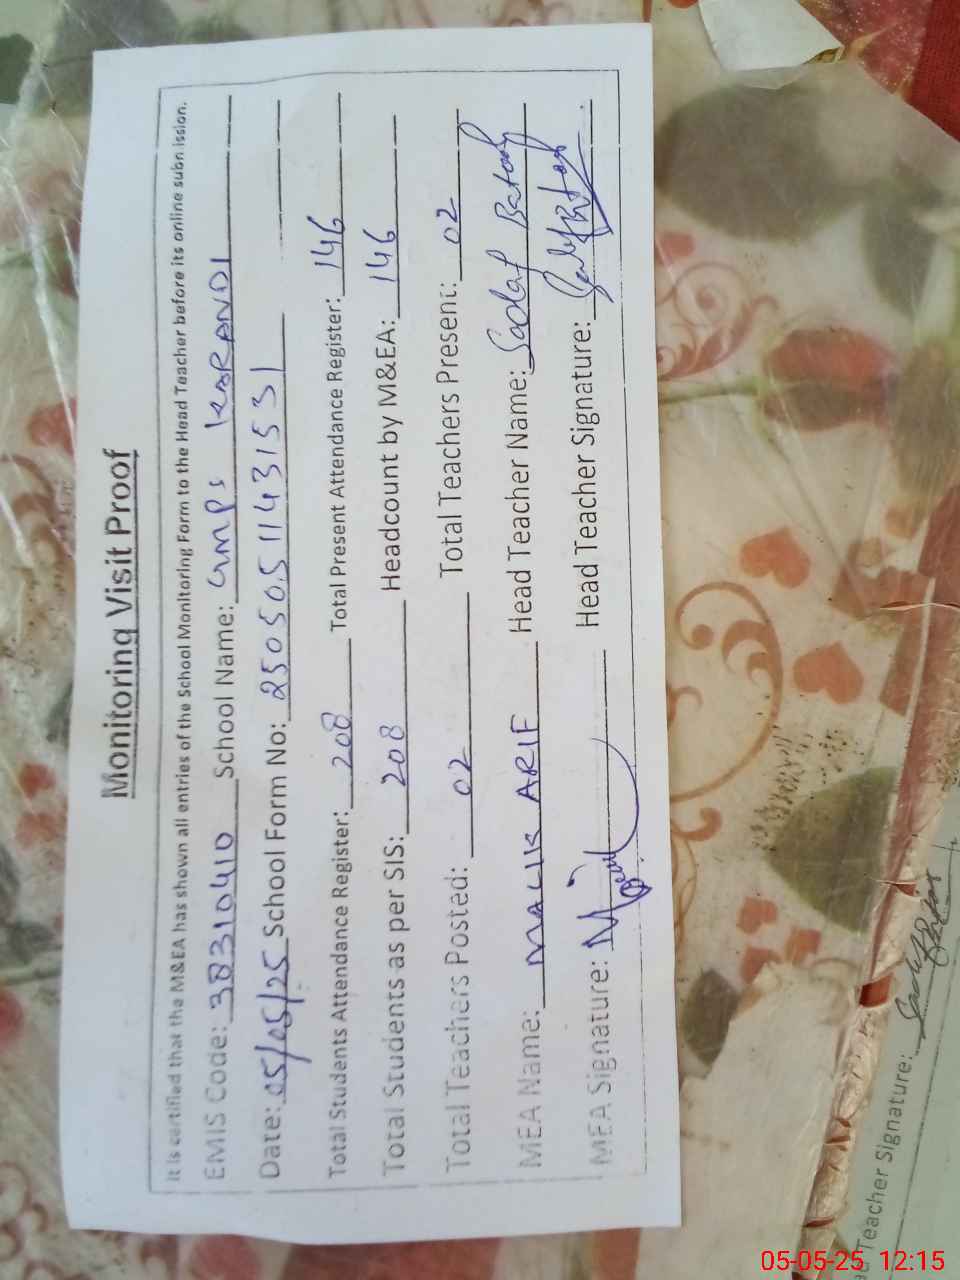 Monitoring Visit Proof
It is certified that the M&EA has shown all entries of the School Monitoring Form to the Head Teacher before its online submission.
EMIS Code: 38310410 School Name: GMPS KARANDI
Date: 05/05/25 School Form No: 2505051143153 1
Total Students Attendance Register: 208 Total Present Attendance Register: 146
Total Students as per SIS: 208 Headcount by M&EA: 146
Total Teachers Posted: 02 Total Teachers Present: 02
MEA Name: MALIK ARIF Head Teacher Name: Batool
MEA Signature: Head Teacher Signature:
Teacher Signature:
05-05-25 12:15